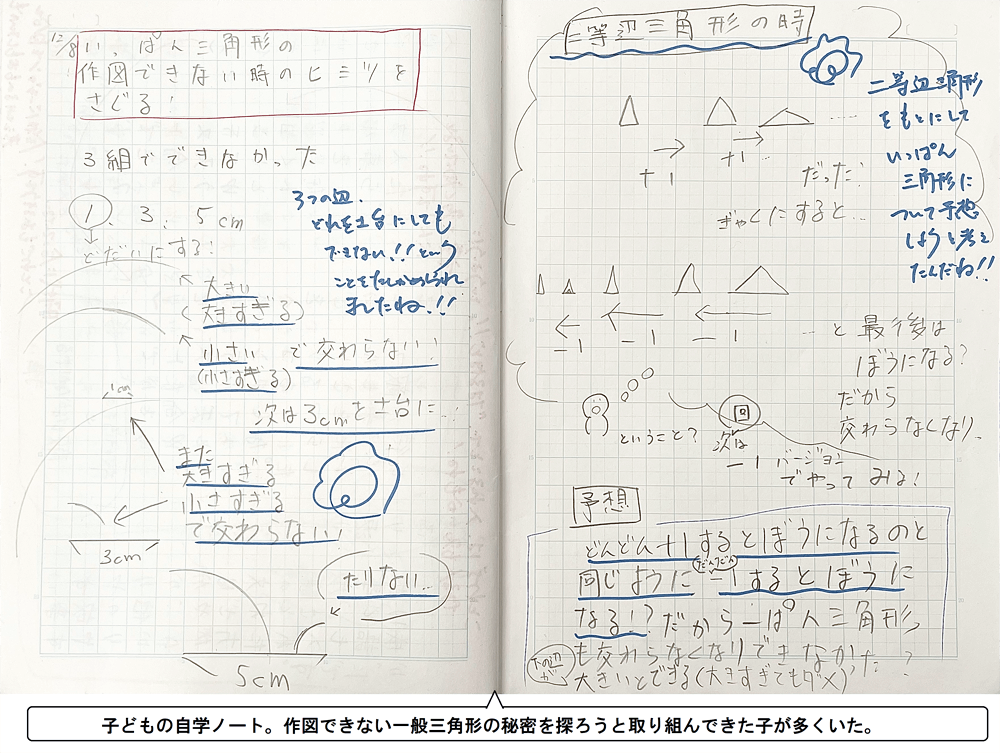 12/8
い、ぱん三角形の
作図できない時のヒミツを
さぐる!
3組でできなかった
1、3、5cm
どだいにする!
大きい
(大きすぎる)
小さい で交わらない!
(小さすぎる)
1cm
次は3cmを土台に…
また
大きすぎる
小さすぎる
で交わらない!
3cm
たりない…
5cm
3つの辺、
どれを土台にしても
できない!!という
ことをたしかめられ
ましたね!!
二等辺三角形の時
+1
+1 …
だった?
ぎゃくにすると…
二等辺三角形
をもとにして
いっぱん
三角形に
ついて予想
しようと考え
たんだね!!
−1
−1
−1
… と最後は
ぼうになる?
だから
交わらなくなり、
ということ?
次は
回
−1 バージョン
でやってみる!
予想
どんどん+1するとぼうになるのと
同じように だんだん −1するとぼうに
なる!?だから一ぱん三角形
も交わらなくなりできなかった?
下の辺が
大きいとできる(大きすぎてもダメ)
子どもの自学ノート。作図できない一般三角形の秘密を探ろうと取り組んできた子が多くいた。